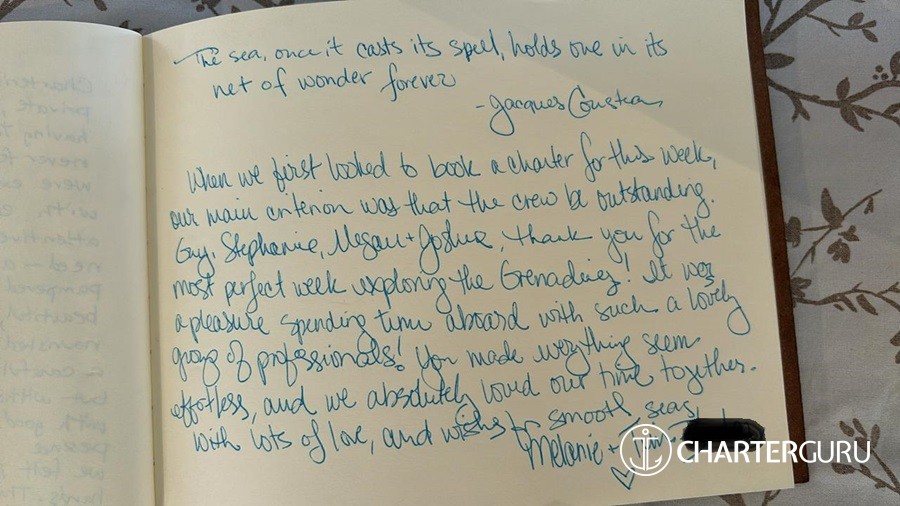 The sea, once it casts its spell, holds one in its
net of wonder forever
- Jacques Cousteau
When we first looked to book a charter for this week,
our main criterion was that the crew be outstanding.
Guy, Stephanie, Megan + Joshua, thank you for the
most perfect week exploring the Grenadines! It was
a pleasure spending time aboard with such a lovely
group of professionals! You made everything seem
effortless, and we absolutely loved our time together.
With lots of love, and wishes for smooth seas,
Melanie +
CHARTERGURU